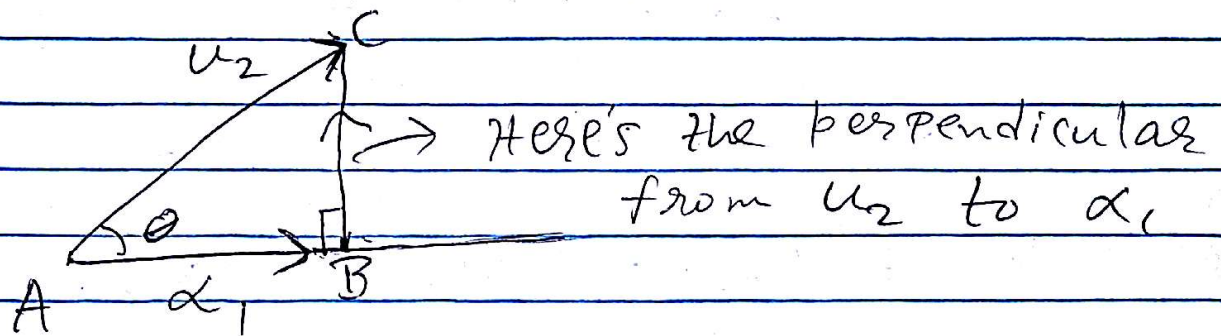 C
u₂
→ Here's the perpendicular
from u₂ to α₁
θ
A α₁ B